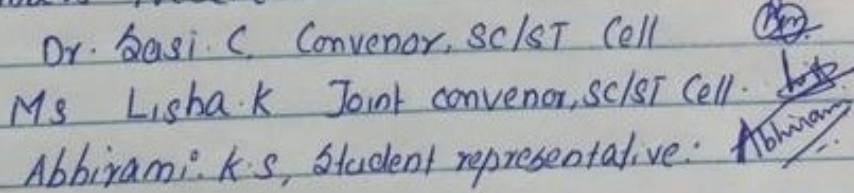 Dr. Sasi. C. Convenor, SC/ST Cell
Ms Lisha. K Joint convenor, SC/ST Cell.
Abhirami. K.S, Student representative. Abhirami